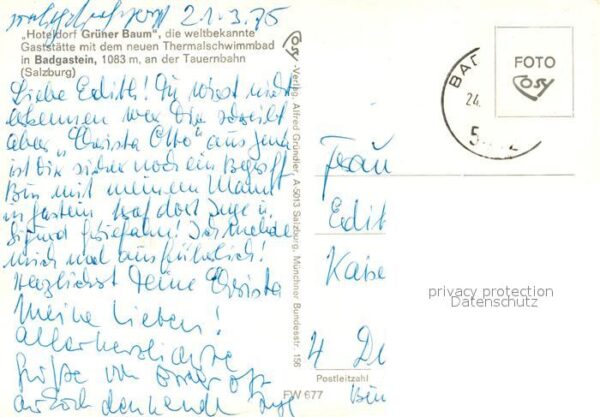 21.3.75
„Hoteldorf Grüner Baum", die weltbekannte
Gaststätte mit dem neuen Thermalschwimmbad
in Badgastein, 1083 m, an der Tauernbahn
(Salzburg)
Liebe Edith! Du wirst nicht
erkennen wer Dir schreibt
aber „Christa Otto" aus
ist Dir sicher noch ein Begriff
Bin mit meinem Mann
in Gastein, traf dort Inge u.
Sigrid Ich melde
mich mal ausführlich!
Herzlichst Deine Christa
Meine Lieben!
Allerherzlichste
Grüße von
denkende
Cosy-Verlag Alfred Gründler, A-5013 Salzburg, Münchner Bundesstr. 156
FOTO
Cosy
BAD
24.
Frau
Edit
Kaise
4 Dü
Postleitzahl
FW 677
privacy protection
Datenschutz